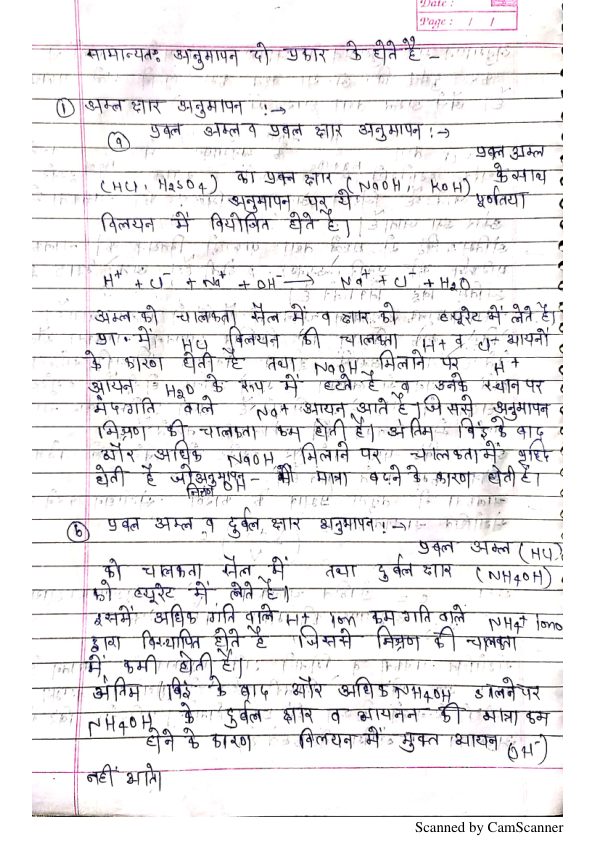 Date :
Page : / /
सामान्यतः अनुमापन दो प्रकार के होते है –
① अम्ल क्षार अनुमापन :→
ⓐ प्रबल अम्ल व प्रबल क्षार अनुमापन :→
प्रबल अम्ल
(HCl, H2SO4) का प्रबल क्षार (NaOH, KOH) के साथ
अनुमापन पर ये पूर्णतया
विलयन में वियोजित होते है।
H+ + Cl- + Na+ + OH- → Na+ + Cl- + H2O
अम्ल को चालकता सेल में व क्षार को ब्यूरेट में लेते है।
प्रा. में HCl विलयन की चालकता H+ व Cl- आयनों
के कारण होती है तथा NaOH मिलाने पर H+
आयन H2O के रूप में हटते है व उनके स्थान पर
मंदगति वाले Na+ आयन आते है। जिससे अनुमापन
मिश्रण की चालकता कम होती है। अंतिम बिंदु के बाद
और अधिक NaOH मिलाने पर चालकता में वृद्धि
होती है जो अनुमापन मिश्रण OH- की मात्रा बढने के कारण होती है।
ⓑ प्रबल अम्ल व दुर्बल क्षार अनुमापन :→
प्रबल अम्ल (HCl)
को चालकता सेल में तथा दुर्बल क्षार (NH4OH)
को ब्यूरेट में लेते है।
इसमें अधिक गति वाले H+ Ion कम गति वाले NH4+ Iono
द्वारा विस्थापित होते है जिससे मिश्रण की चालकता
में कमी होती है।
अंतिम बिंदु के बाद और अधिक NH4OH डालने पर
NH4OH के दुर्बल क्षार व आयनन की मात्रा कम
होने के कारण विलयन में मुक्त आयन (OH-)
नहीं आते।
Scanned by CamScanner